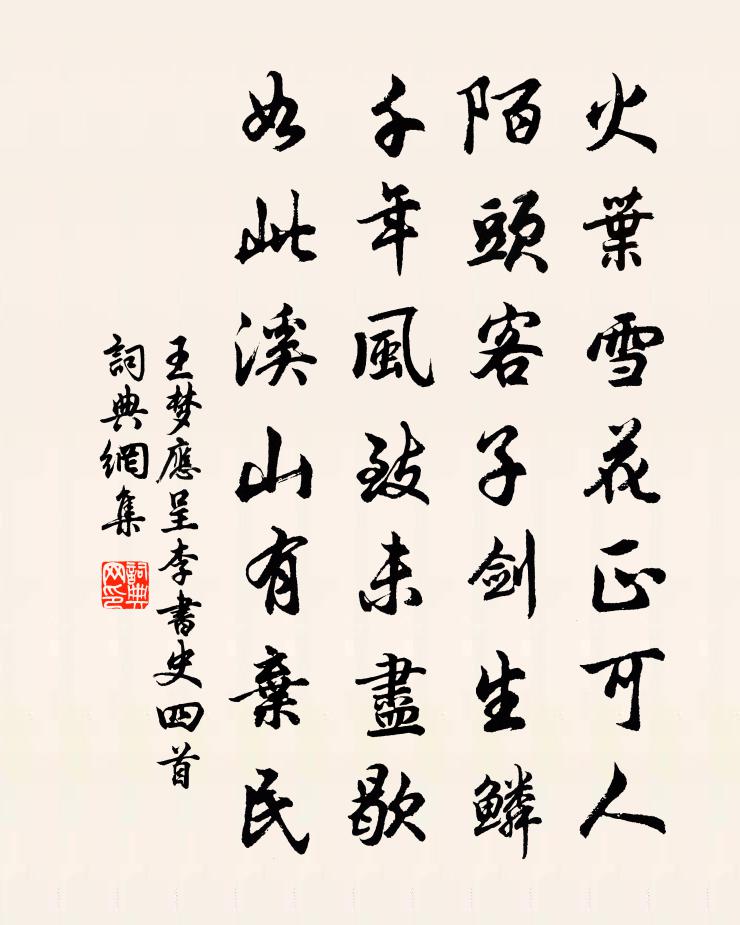 火葉雪花正可人
陌頭客子劍生鱗
千年風致未盡歇
如此溪山有棄民
王梦應呈李書史四首
詞典網集
詞典網印